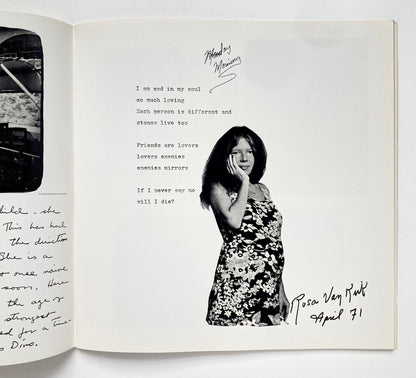 Monday
Morning
I am sad in my soul
so much loving
Each person is different and
stones live too
Friends are lovers
lovers enemies
enemies mirrors
If I never say no
will I die?
Rosa Van Kirk
April 71
child - she
This has had
the direction
She is a
once naive
soon. Here
the age of
strongest
for a time
Dino.